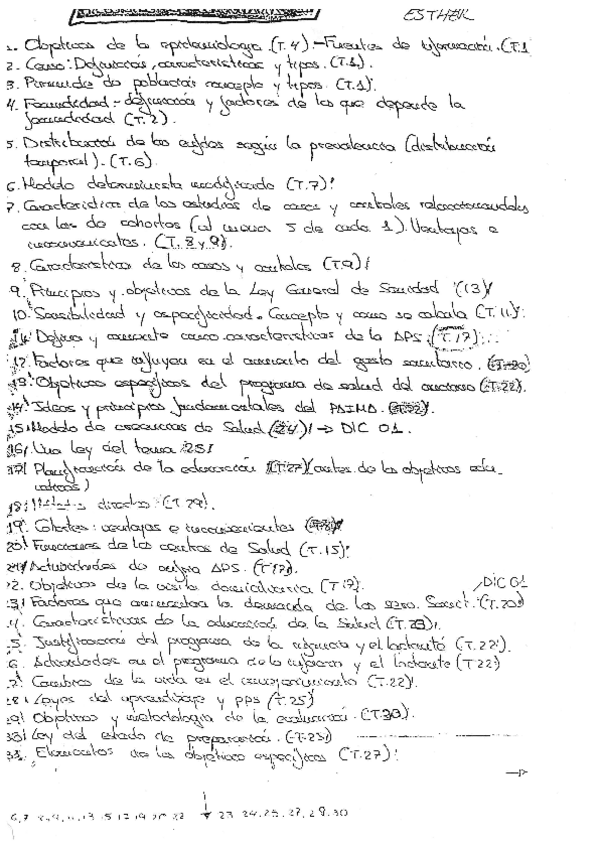 ESTHER
1. Objetivos de la epidemiología (T.4).- Fuentes de información. (T.1
2. Censo: Definición, características y tipos. (T.1).
3. Pirámide de población concepto y tipos. (T.1).
4. Fecundidad:- definición y factores de los que depende la
fecundidad (T.2).
5. Distribución de los según la prevalencia (distribución
temporal). (T.6)
6. Modelo determinista modificado (T.7)!
7. Características de los estudios de casos y controles relacionandolos
con los de cohortes (al menos 5 de cada 1). Ventajas e
inconvenientes. (T. 8 y 9).
8. Características de los casos y controles (T.9)!
9. Principios y objetivos de la Ley General de Sanidad (13)
10. Sensibilidad y especificidad. Concepto y como se calcula (T.11).
Define y comenta características de la APS. (T.17)
12. Factores que influyen en el aumento del gasto sanitario. (T.20)
13. Objetivos específicos del programa de salud del anciano (T.22).
14. Ideas y principios fundamentales del
15. Modelo de creencias de Salud (24)! → DIC 01.
16. Una Ley del tema 25!
17. Planificación de la educación (T.27) (antes de los objetivos edu-
cativos)
18. Métodos directos (T 29).
19. Cohortes: ventajas e inconvenientes (T.8)
20. Funciones de los centros de Salud (T.15)!
21. Actividades de APS. (T.17).
2. Objetivos de la visita domiciliaria (T.17).
DIC 01
3. Factores que aumentan la demanda de los serv. Sanit. (T.20)
4. Características de la educación de la Salud (T.23).
5. Justificación del programa de la infancia y el lactante (T.22).
6. Actividades en el programa de la infancia y el lactante (T.22)
7. Cambios de la vida en el envejecimiento (T.22)!
28. Leyes del aprendizaje y pps (T.25)
29. Objetivos y metodología de la evaluación. (T.30).
30. Ley del estado de preparación. (T.25)
31. Elementos de los objetivos específicos (T.27)!
6,7 8,9,11,13 15 17 19 20 22 23 24,25,27,28,30